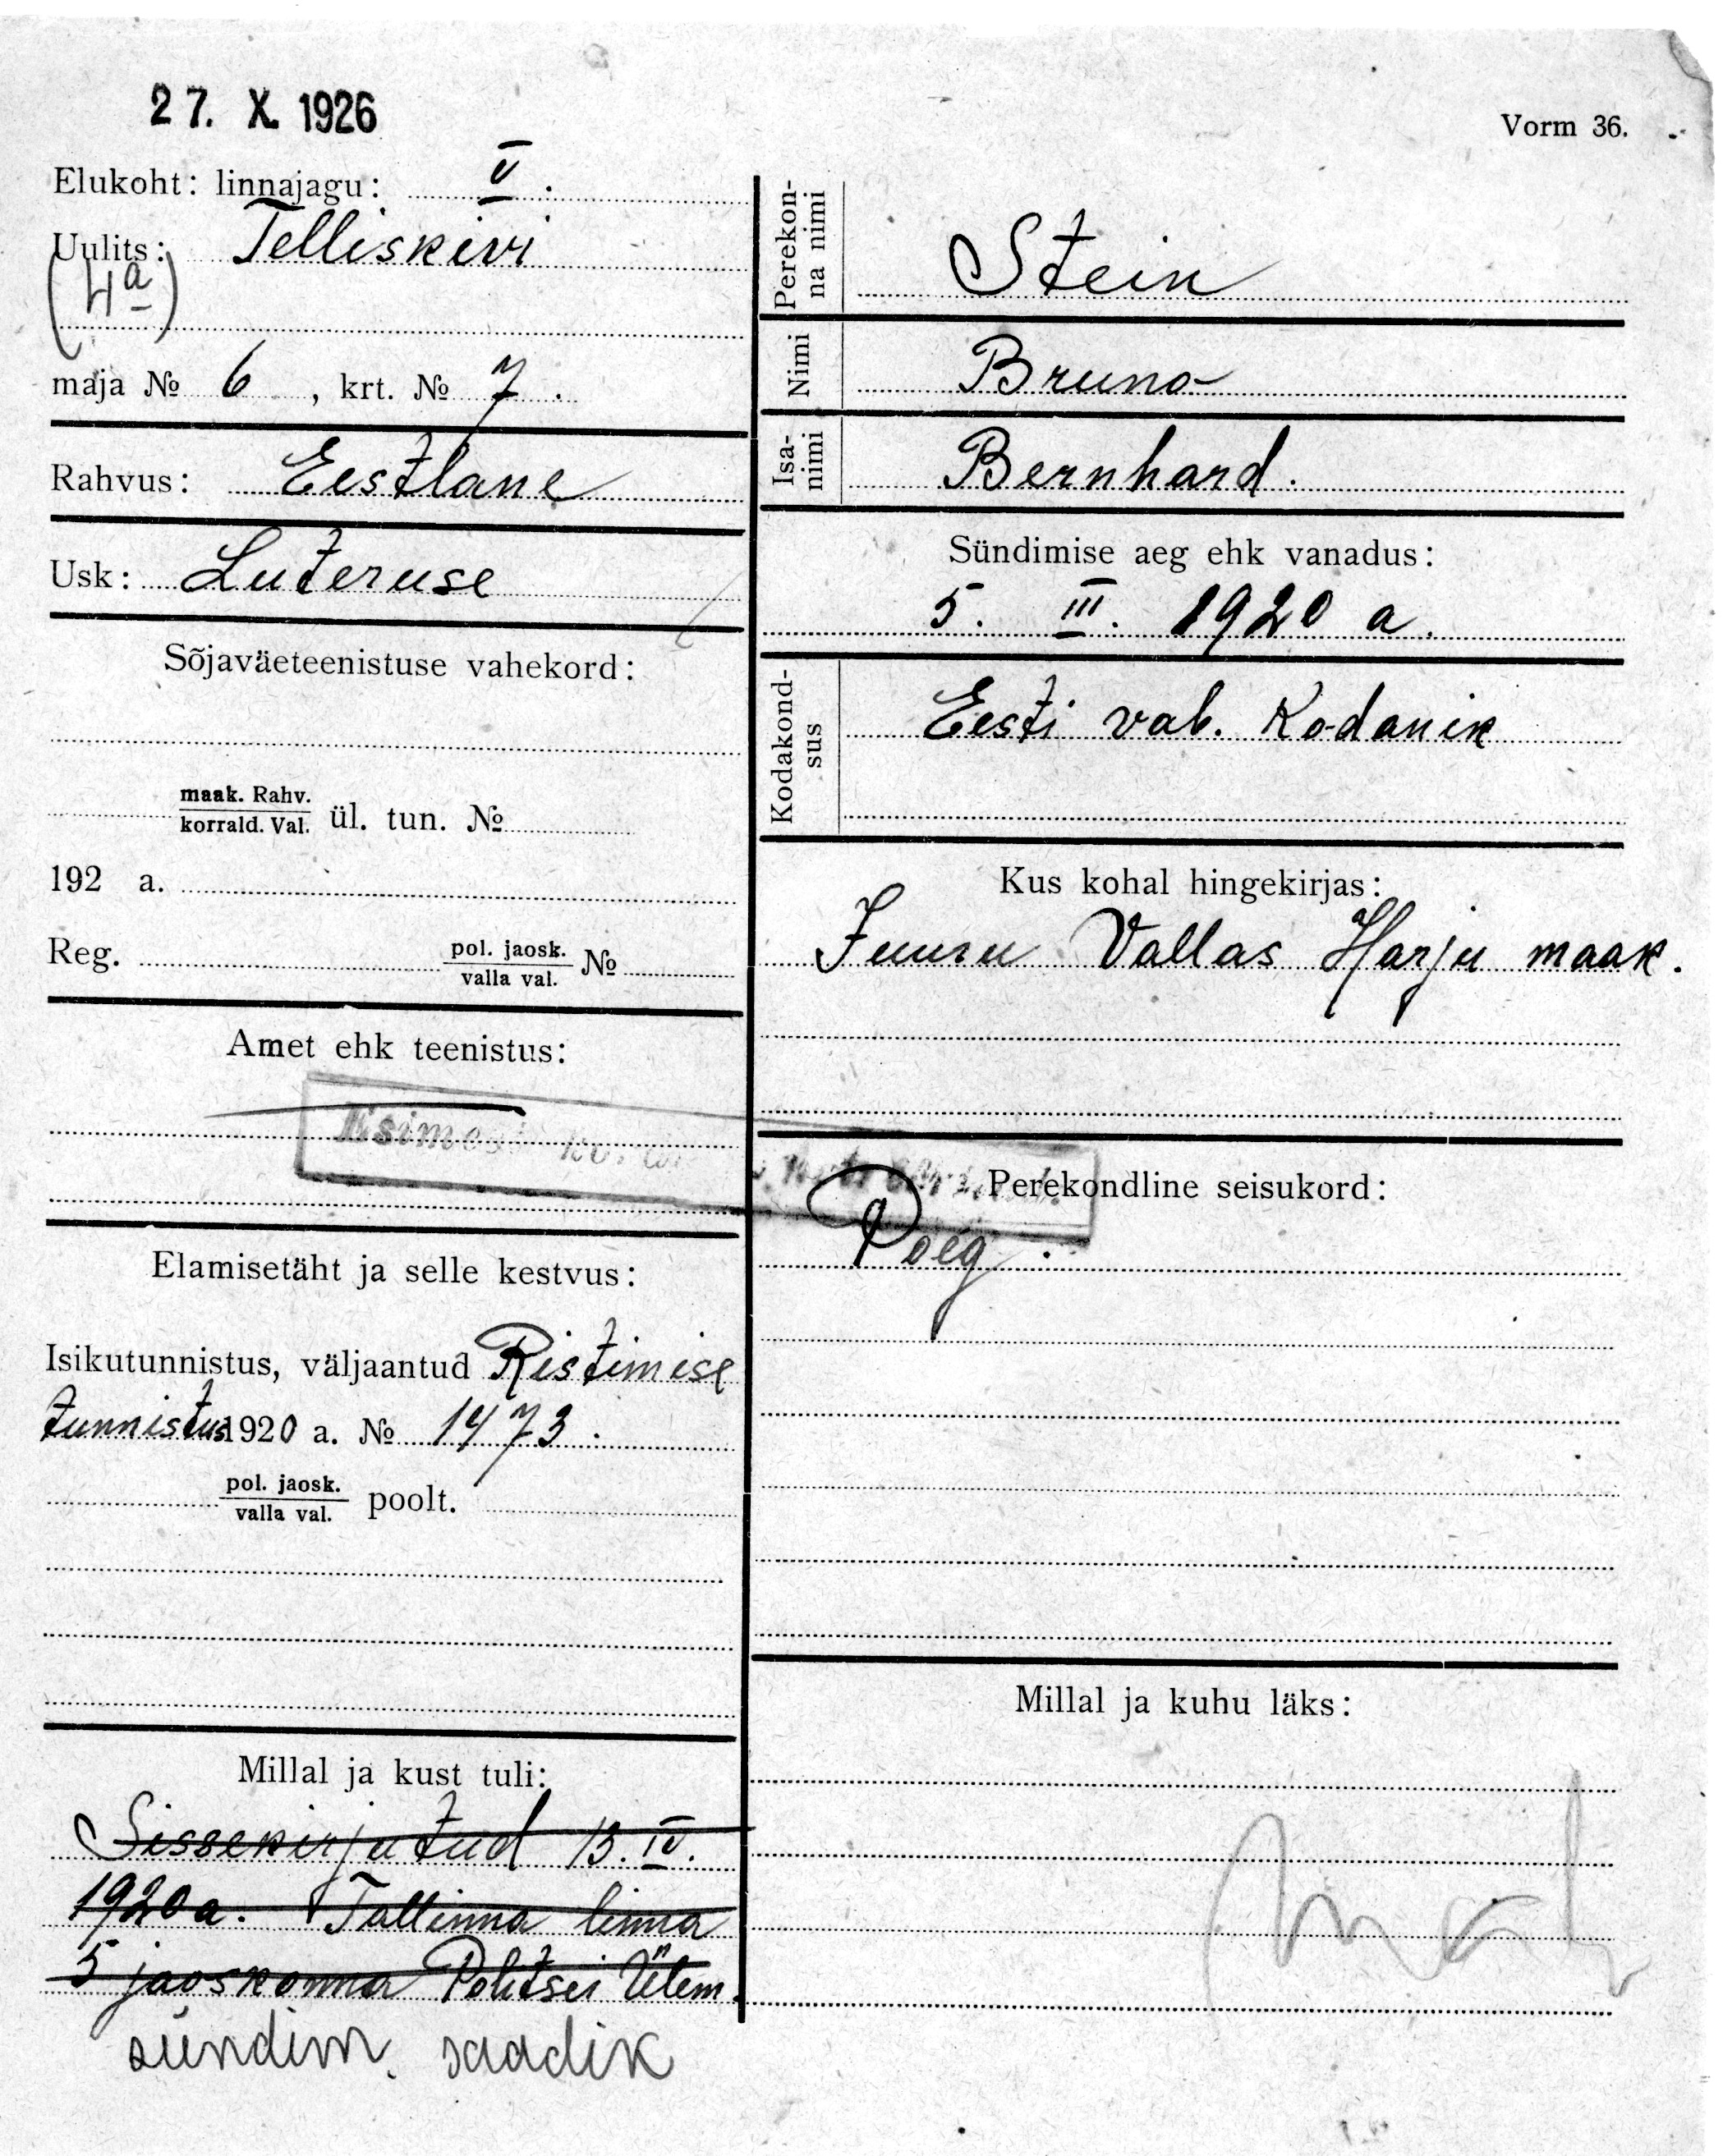 27. X. 1926
Vorm 36.
Elukoht: linnajagu: V.
Uulits: Telliskivi
(4a)
maja № 6, krt. № 7.
Rahvus: Eestlane
Usk: Luteruse
Sõjaväeteenistuse vahekord:
maak. Rahv.
korrald. Val. ül. tun. №
192 a.
Reg. pol. jaosk.
valla val. №
Amet ehk teenistus:
Esimest
Elamisetäht ja selle kestvus:
Isikutunnistus, väljaantud Ristimise
tunnistus 1920 a. № 1473.
pol. jaosk.
valla val. poolt.
Millal ja kust tuli:
Sissekirjutud 13. IV.
1920 a. Tallinna linna
5 jaoskonna Politsei Ülem.
sündim. saadik
Perekon-
na nimi
Stein
Nimi
Bruno
Isa-
nimi
Bernhard.
Sündimise aeg ehk vanadus:
5. III. 1920 a.
Kodakond-
sus
Eesti vab. Kodanik
Kus kohal hingekirjas:
Juuru Vallas Harju maak.
Perekondline seisukord:
Poeg.
Millal ja kuhu läks: